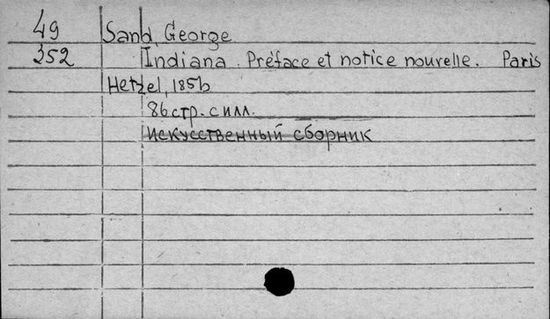 49 Sand, George
352 Indiana. Préface et notice nouvelle. Paris
Hetzel, 1856
86 стр. с илл.
Искусственный сборник